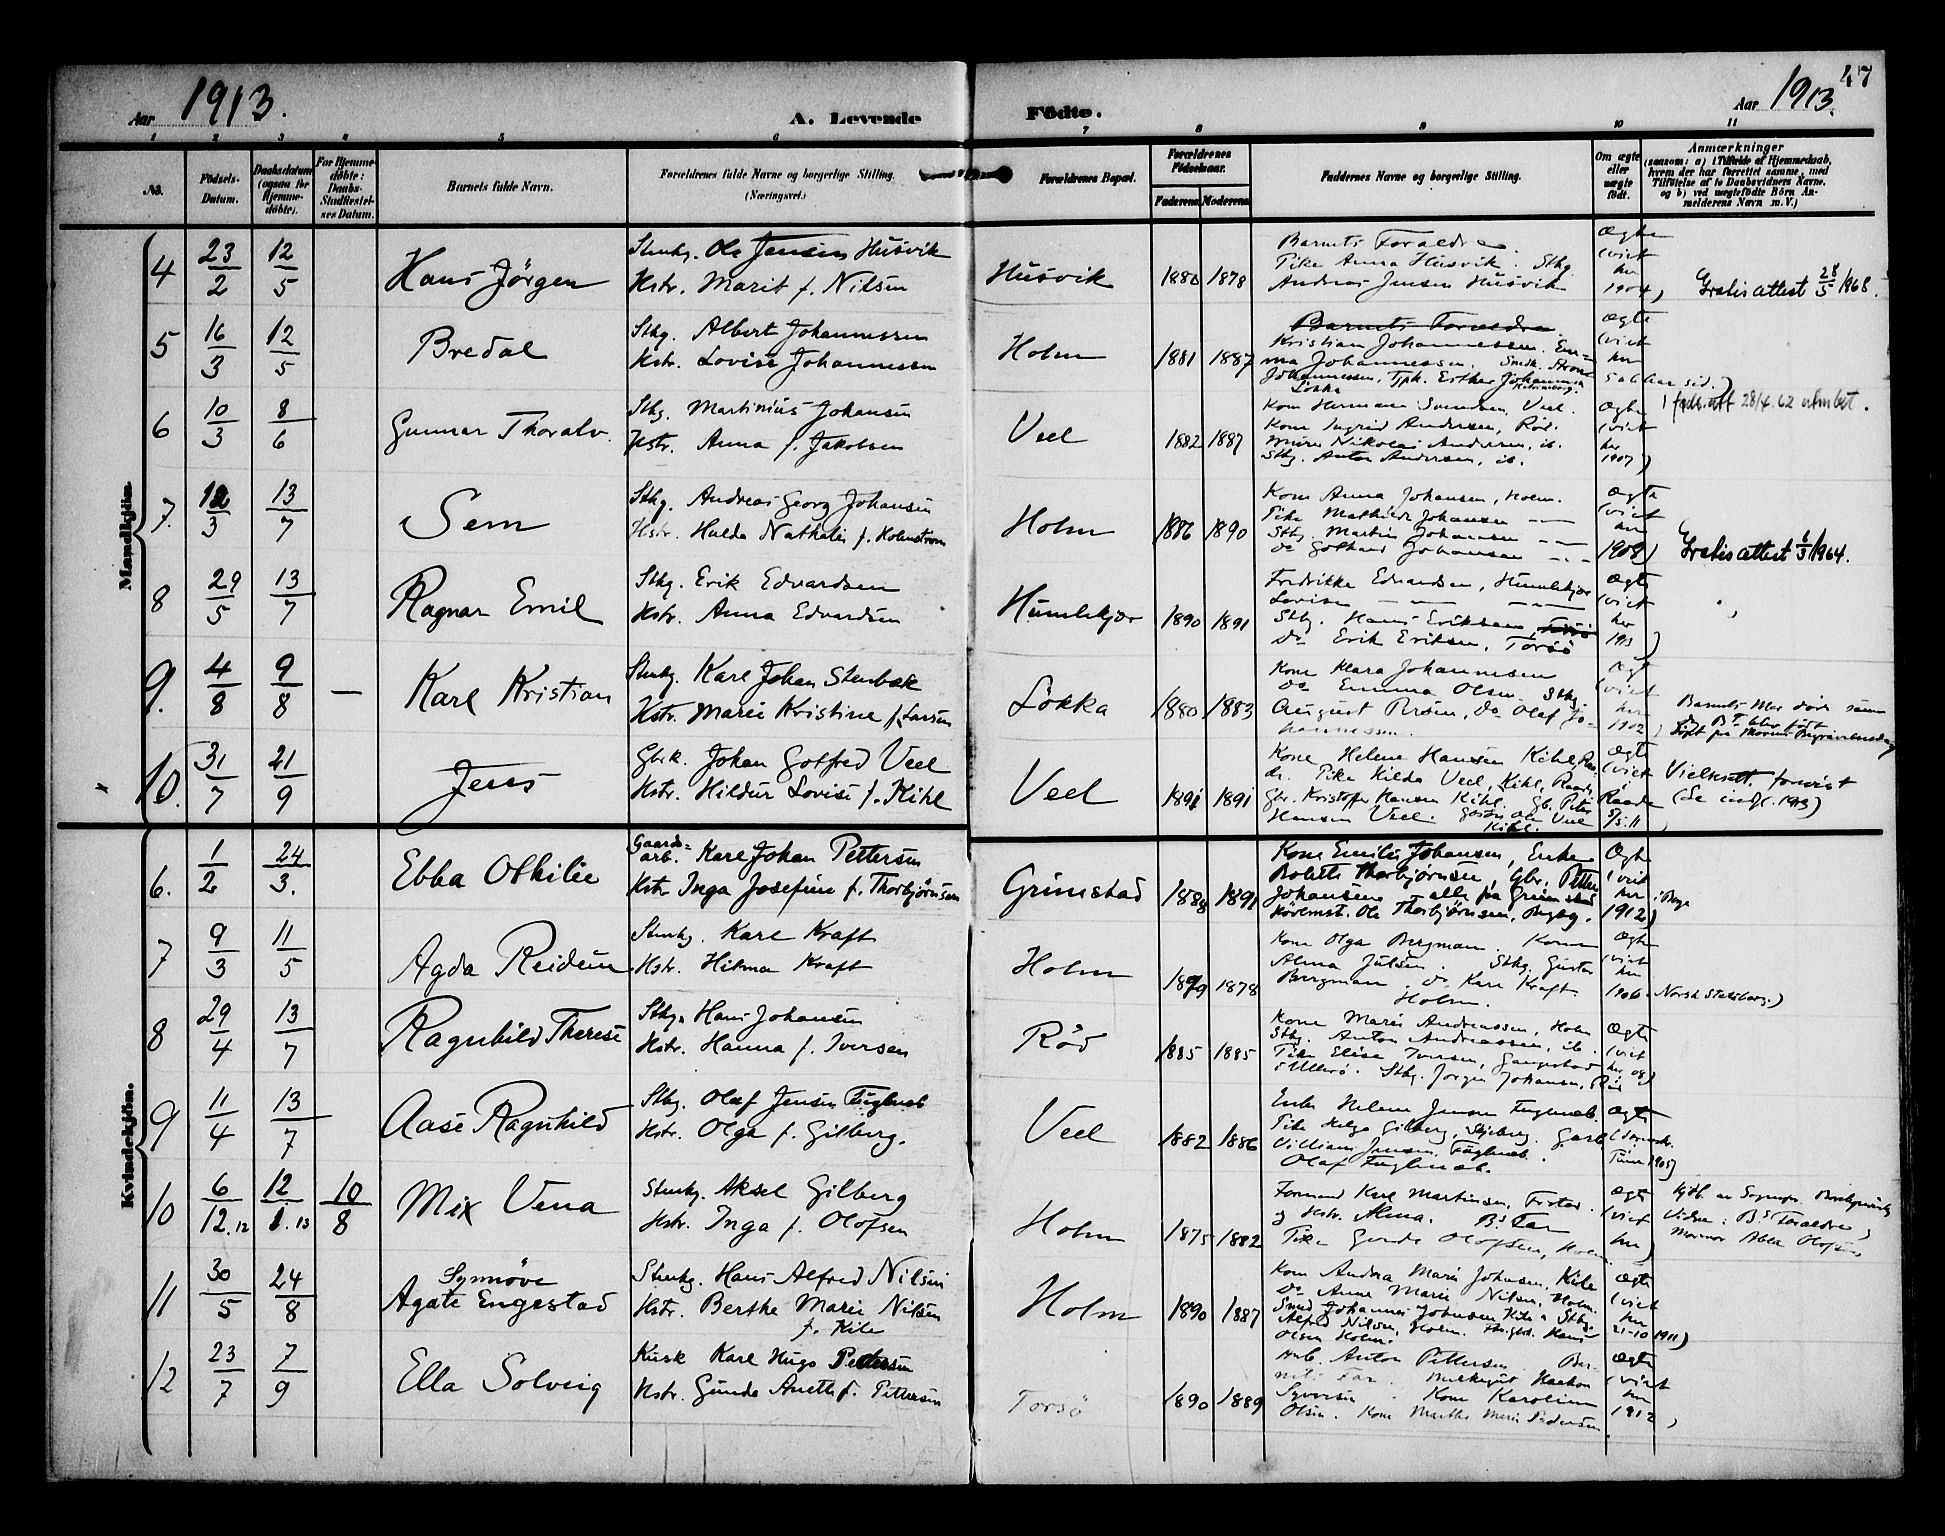 47
Aar 1913.
A. Levende Födte.
Aar 1913.
1 2 3 4 5 6 7 8 9 10 11
No.
Födsels-Datum.
Daabsdatum (ogsaa for Hjemme-döbte).
For Hjemme-döbte: Daabs-Stadfæstel-ses Datum.
Barnets fulde Navn.
Forældrenes fulde Navne og borgerlige Stilling. (Næringsvei.)
Forældrenes Bopæl.
Forældrenes Födselsaar.
Faderens Moderens
Faddernes Navne og borgerlige Stilling.
Om ægte eller uægte födt.
Anmærkninger
(saasom: a) i Tilfælde af Hjemmedaab, hvem der har forrettet samme, med Tilföielse af to Daabsvidners Navne, og b) ved uægtefödte Börn An-melderens Navn m. V.)
Mandkjön.
4 23/2 12/5 Hans Jörgen
Stenhg. Ole Jensen Husvik
Hstr. Marit f. Nilsen
Husvik 1880 1878
Barnets Foraldre.
Pike Anna Husvik. Sthg.
Andreas Jensen Husvik
Ægte
(viet
her
1904)
Gratis attest 28/5 1968.
5 16/3 12/5 Bredal
Sthg. Albert Johannessen
Hstr. Lovise Johannessen
Holm 1881 1887
Barnets Foraldre
Kristian Johannessen. Em-
ma Johannessen. Smdk.
Johannessen, Tph. Esther Johannessen
Lökka
Ægte
(viet
her
)
1 føds.att 28/4.62
6 10/3 8/6 Gunnar Thoralv.
Sthg. Martinius Johansen
Hstr. Anna f. Jakobsen
Veel 1882 1887
Kone Hermann Svendsen, Veel.
Kone Ingrid Andersen, Röd.
Nikolai Andersen, ib.
Sthg. Anton Andersen, ib.
Ægte
(viet
her
1907)
7. 12/3 13/7 Sem
Sthg. Andreas Georg Johansen
Hstr. Hulda Nathalie f. Holmstrøm
Holm 1886 1890
Kone Anna Johansen, Holm.
Pike Mathilde Johansen — —
Sthg. Martin Johansen — —
Do Gothard Johansen — —
Ægte
(viet
her
1909)
Gratis attest 1/3 1964.
8 29/5 13/7 Ragnar Emil
Sthg. Erik Edvardsen
Hstr. Anna Edvardsen
Humlekjær 1890 1891
Fredrikke Edvardsen, Humlekjær
Lovise — — —
Sthg. Hans Eriksen, Torsö
Do Erik Eriksen, Torsö
Ægte
(viet
her
1913)
9. 4/8 9/8 — Karl Kristian
Stenhg. Karl Johan Stenbæk
Hstr. Marie Kristine f. Larsen
Lökka 1880 1883
Kone Klara Johannesen
Do Emma Olsen. Sthg.
August Brøsen, Do Olaf Jo-
hannessen.
Ægt
(viet
her
1902)
Barnets Mor döde samme
dag Bt blev födt.
Døbt paa Morens Begravelsesdag
10. 31/7 21/9 Jens
Gbrk. Johan Gotfred Veel
Hstr. Hildur Lovise f. Kihl
Veel 1891 1891
Kone Helene Hansen Kihl, Raa-
de. Pike Hilda Veel, Kihl, Raade,
Gbr. Kristofer Hansen Kihl. Gb. Peter
Hansen Veel. Ole Veel
Kihl.
Ægte
(viet
i
Raade
3/5.11
Vielsesatt. forevist
(se indf. 1913)
Kvindekjön.
6. 1/2 24/3. Ebba Othilie
Gaards-
arb. Karl Johan Pettersen
Hstr Inga Josefine f. Thorbjørnsen
Grimstad 1888 1891
Kone Emilie Johansen, Enke
Bolette Thorbjørnsen, Gbr. Petter
Johansen — alle fra Grimstad
Ole Thorbjørnsen,
Ægte
(viet
her i Borge
1912)
7 9/3 11/5 Agda Reidun
Stenhg. Karl Kraft
Hstr. Hilma Kraft
Holm 1879 1878
Kone Olga Bergman. Kone
Alma Julsen. Sthg. Gustav
Bergman. do Karl Kraft.
Holm.
Ægte
(viet
her
1906. Norsk Statsborg.)
8 29/4 13/7 Ragnhild Therese
Sthg. Hans Johansen
Hstr. Hanna f. Iversen
Röd 1885 1885
Kone Marie Andreassen, Holm
Sthg. Anton Andreassen, ib.
Pike Elise Iversen, Gangestad
Ullerö. Sthg. Jørgen Johansen, Röd
Ægte
(viet
her 09)
9 11/4 13/7 Aase Ragnhild
Sthg. Olaf Jensen Fuglenæb
Hstr. Olga f. Gilberg.
Veel 1882 1886
Enke Helene Jensen Fuglenæb.
Pike Helga Gilberg, Skjeberg. Garb.
William Jensen, Fuglenæb.
Olaf Fuglenæb.
Ægte
Tune 1905)
10 6/12.12 12/1.13 10/8 Mix Vena
Stenhg. Aksel Gilberg
Hstr. Inga f. Olofsen
Holm 1875 1882
Formand Karl Martinsen, Fstad.
og Hstr. Alma. Bs Far
Pike Gerda Olofsen, Holm
Ægte
(viet
her)
Hjdb. av Sognepr.
Vidner: Bs Foraldre,
Mormor Abla Olofsen
11 30/5 24/8 Synnöve
Agate Engestad
Stenhg. Hans Alfred Nilsen
Hstr. Berthe Marie Nilsen
f. Kile
Holm 1890 1887
Kone Andrea Marie Johnsen, Kile
Do Anne Marie Nilsen, Holm.
Smed Johannes Johnsen Kile. Sthg.
Alfred Nilsen, Holm. Hans
Olsen Holm.
Ægte
(viet
her
21-10 1911)
12 23/7 7/9 Ella Solveig
Kusk Karl Hugo Pettersen
Hstr. Gunda Anette f. Pettersen
Torsö 1890 1889
Anton Pettersen. Bar-
nets Far. Haakon
Syversen. Kone Karoline
Olsen. Kone Marthe Marie Pedersen
Ægte
(viet
her
1912)